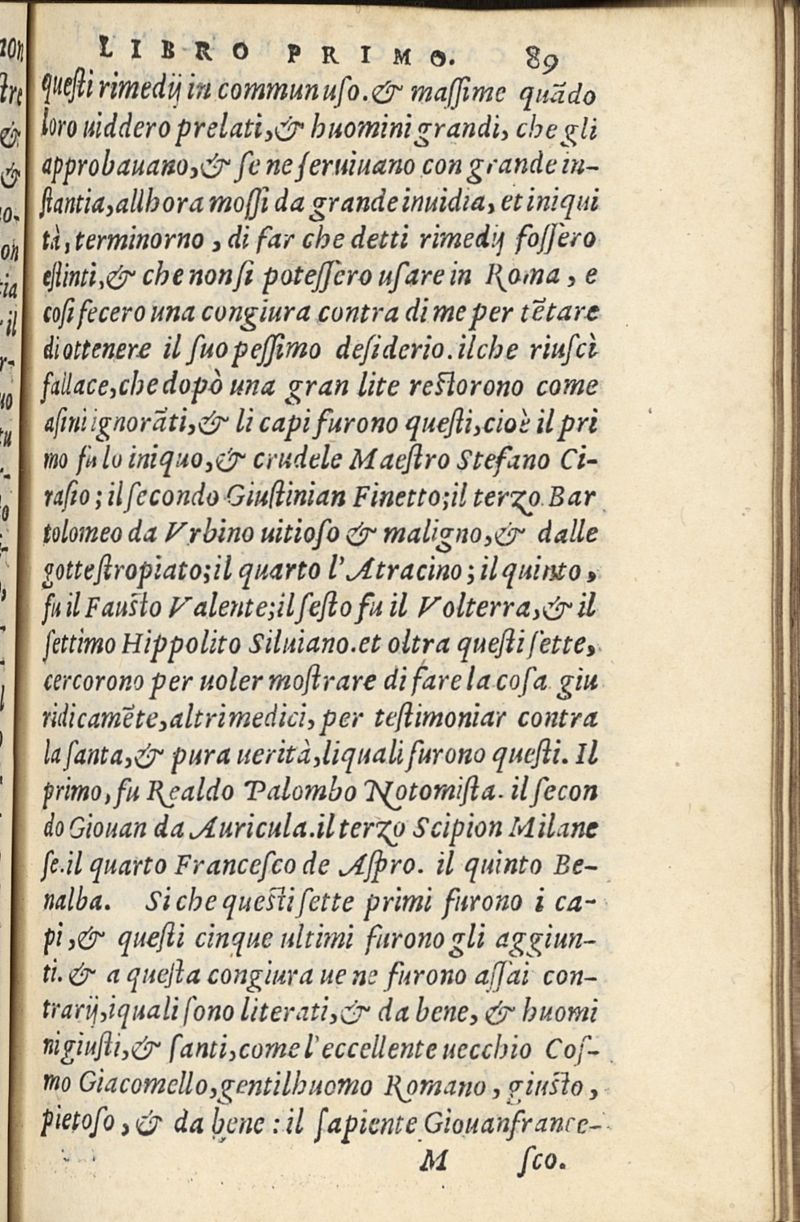 LIBRO PRIMO. 89
queſti rimedij in commun uſo. & maſſime quãdo
loro uiddero prelati, & huomini grandi, che gli
approbauano, & ſe ne ſeruiuano con grande in-
ſtantia, allhora moſſi da grande inuidia, et iniqui
tà, terminorno, di far che detti rimedij foſſero
eſtinti, & che non ſi poteſſero uſare in Roma, e
coſi fecero una congiura contra di me per tẽtare
di ottenere il ſuo peſſimo deſiderio. ilche riuſcì
fallace, che dopò una gran lite reſtorono come
aſini ignorãti, & li capi furono queſti, cioè il pri
mo fu lo iniquo, & crudele Maeſtro Stefano Ci-
raſio; il ſecondo Giuſtinian Finetto; il terzo Bar
tolomeo da Vrbino uitioſo & maligno, & dalle
gotte ſtropiato; il quarto l'Atracino; il quinto,
fu il Fauſto Valente; il ſeſto fu il Volterra, & il
ſettimo Hippolito Siluiano. et oltra queſti ſette,
cercorono per uoler moſtrare di fare la coſa giu
ridicamẽte, altri medici, per teſtimoniar contra
la ſanta, & pura uerità, li quali furono queſti. Il
primo, fu Realdo Palombo Notomiſta. il ſecon
do Giouan da Auricula. il terzo Scipion Milane
ſe. il quarto Franceſco de Aſpro. il quinto Be-
nalba. Si che queſti ſette primi furono i ca-
pi, & queſti cinque ultimi furono gli aggiun-
ti. & a queſta congiura ue ne furono aſſai con-
trarij, iquali ſono literati, & da bene, & huomi
ni giuſti, & ſanti, come l'eccellente uecchio Coſ-
mo Giacomello, gentilhuomo Romano, giuſto,
pietoſo, & da bene: il ſapiente Giouanfrance-
M ſco.